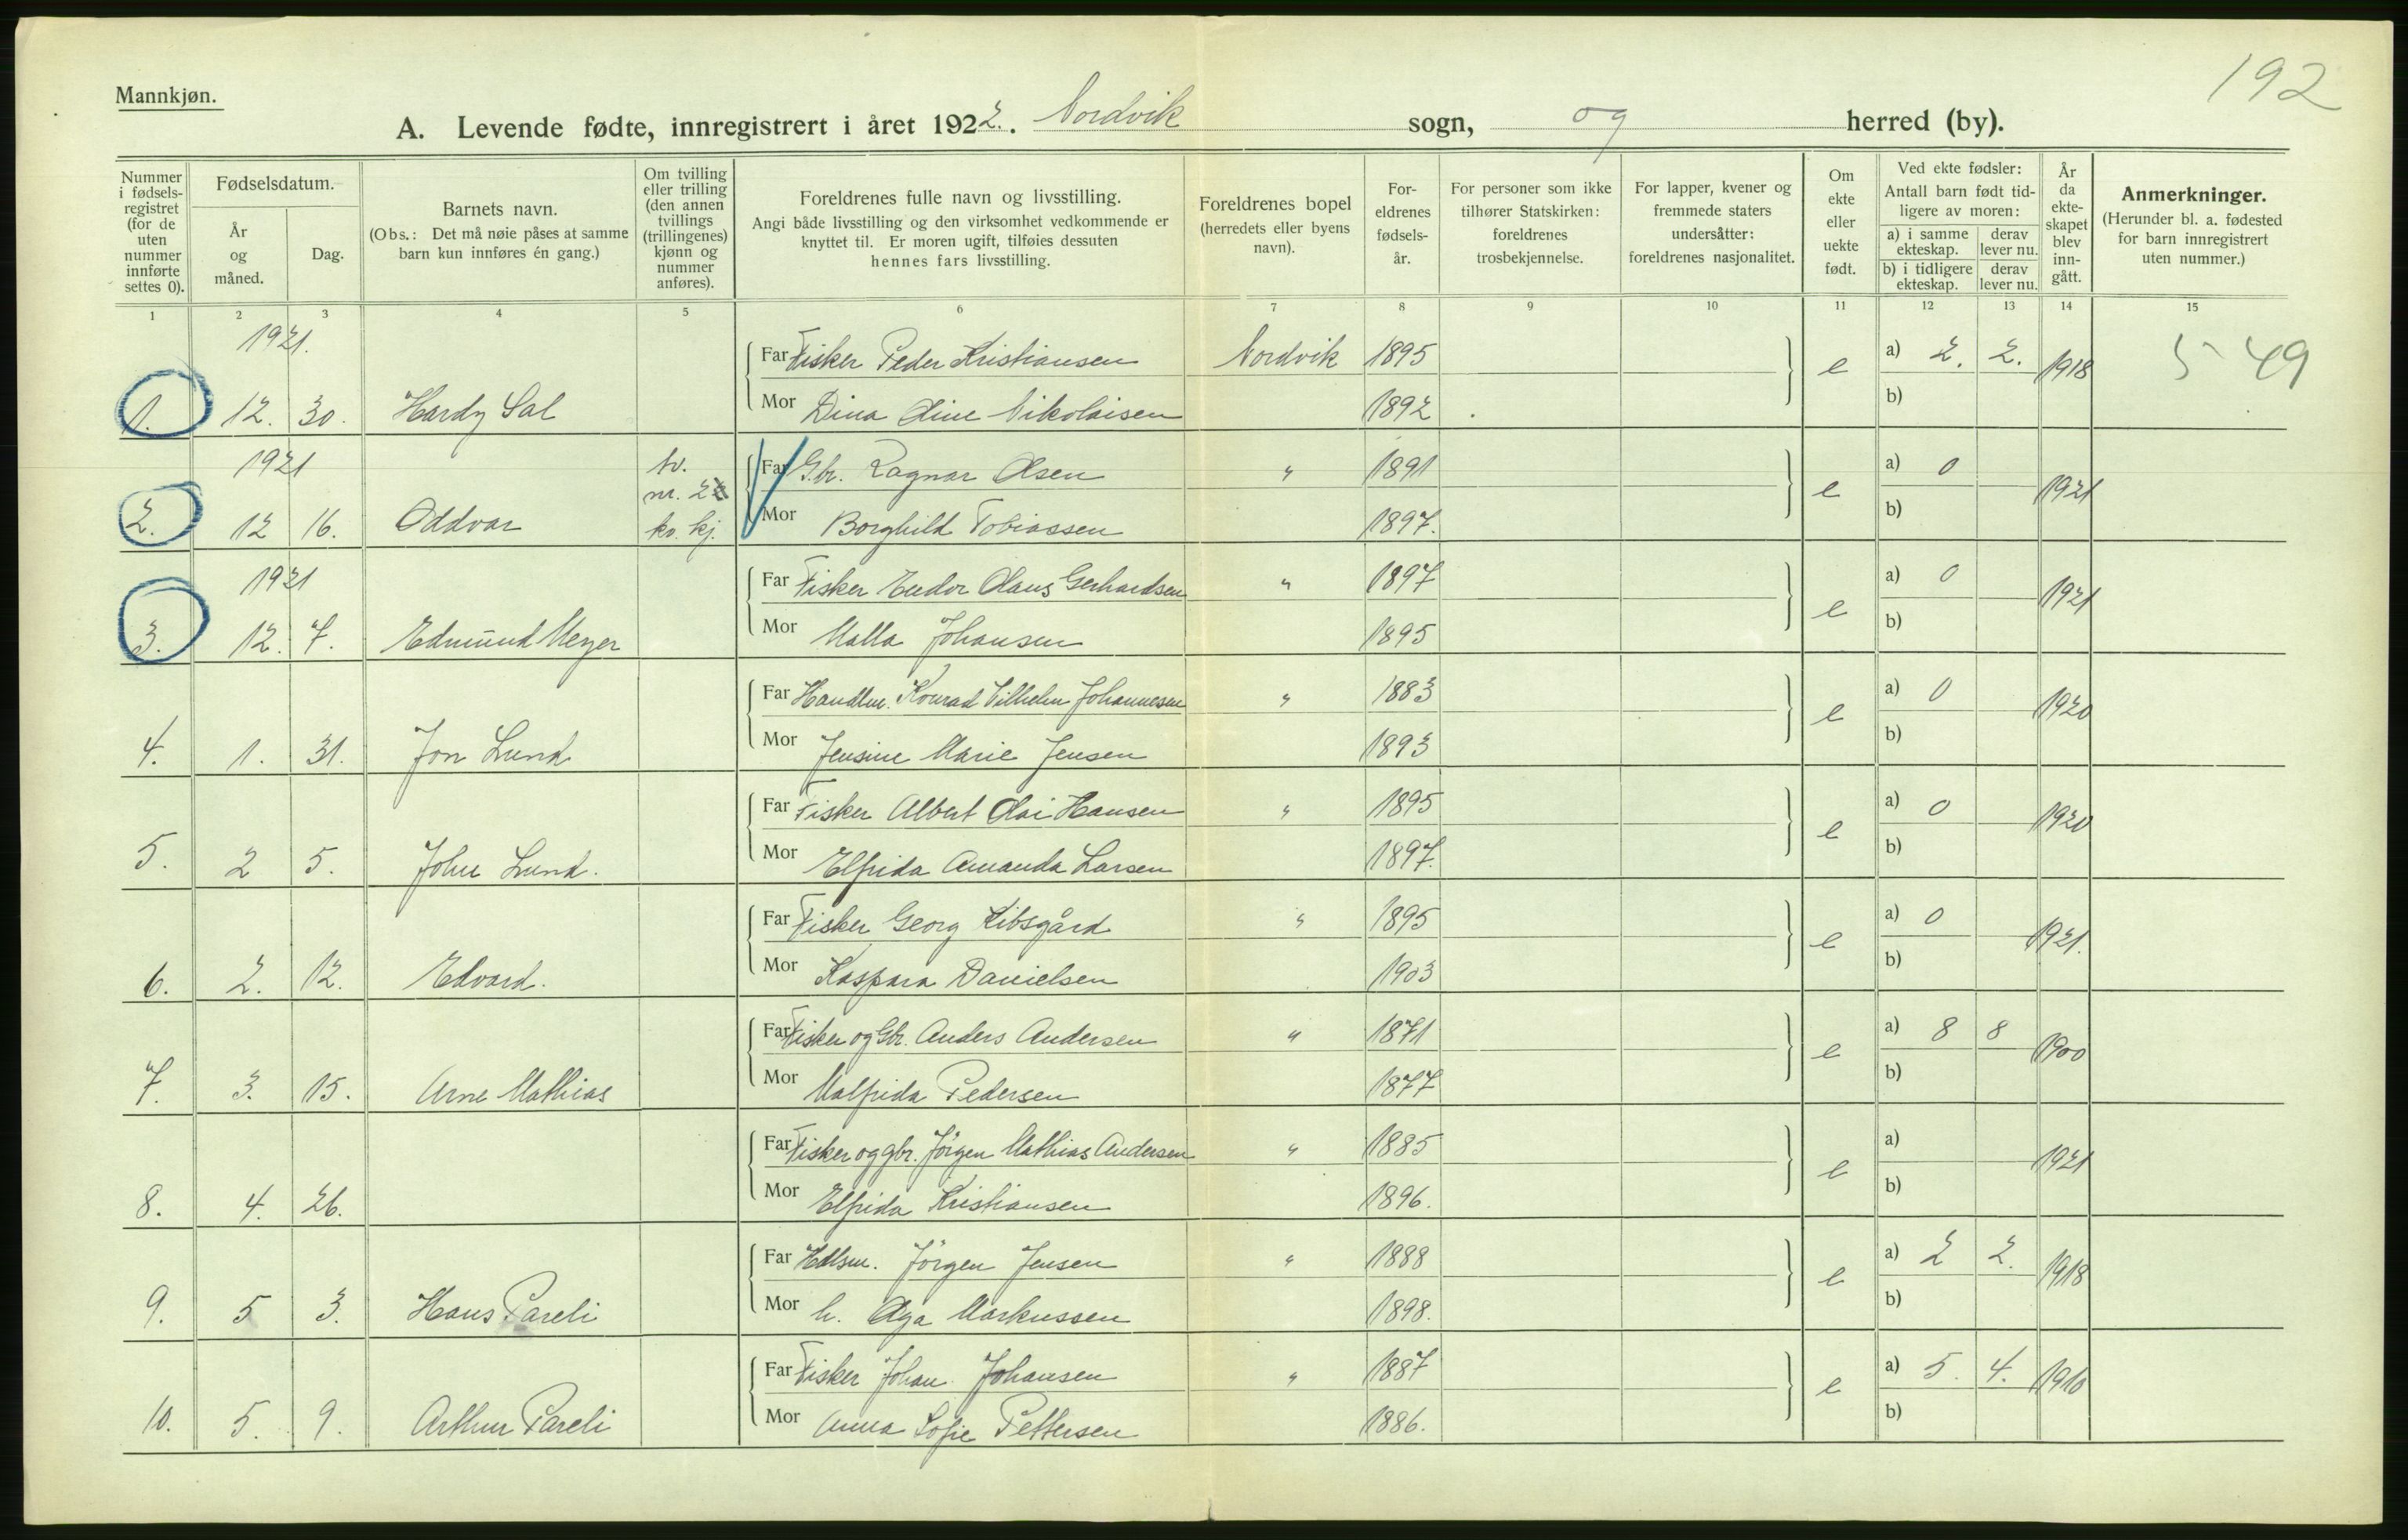 192
Mannkjøn.
A. Levende fødte, innregistrert i året 1922. Nordvik sogn, og herred (by).
Nummer i fødsels-registret (for de uten nummer innførte settes 0).
Fødselsdatum.
År og måned.
Dag.
Barnets navn.
(Obs.: Det må nøie påses at samme barn kun innføres én gang.)
Om tvilling eller trilling (den annen tvillings (trillingenes) kjønn og nummer anføres).
Foreldrenes fulle navn og livsstilling.
Angi både livsstilling og den virksomhet vedkommende er knyttet til. Er moren ugift, tilføies dessuten hennes fars livsstilling.
Foreldrenes bopel (herredets eller byens navn).
For-eldrenes fødsels-år.
For personer som ikke tilhører Statskirken: foreldrenes trosbekjennelse.
For lapper, kvener og fremmede staters undersåtter: foreldrenes nasjonalitet.
Om ekte eller uekte født.
Ved ekte fødsler: Antall barn født tid-ligere av moren:
a) i samme ekteskap. derav lever nu.
b) i tidligere ekteskap. derav lever nu.
År da ekte-skapet blev inn-gått.
Anmerkninger.
(Herunder bl. a. fødested for barn innregistrert uten nummer.)
1 2 3 4 5 6 7 8 9 10 11 12 13 14 15
1921.
Far Fisker Peder Kristiansen Nordvik 1895 e a) 2. 2. 1918 5 49
1. 12. 30. Hardy Sal Mor Dina Oline Nikolaisen 1892 b)
1921 tv. nr. 2 kv. kj.
Far Gbr. Ragnar Olsen " 1891 e a) 0 1921
2. 12 16. Oddvar Mor Borghild Tobiassen 1897. b)
1921
Far Fisker Eudor Olaus Gerhardsen " 1897 e a) 0 1921
3. 12. 7. Edmund Meyer Mor Malla Johansen 1895 b)
Far Handlm. Konrad Vilhelm Johannesen " 1883 e a) 0 1920
4. 1. 31. Jon Lund Mor Jensine Marie Jensen 1893 b)
Far Fisker Albert Olai Hansen " 1895 e a) 0 1920
5. 2 5. John Lund. Mor Elfrida Amanda Larsen 1897. b)
Far Fisker Georg Kibsgård " 1895 e a) 0 1921.
6. 2. 12. Edvard. Mor Kaspara Danielsen 1903 b)
Far Fisker og Gbr. Anders Andersen " 1871 e a) 8 8 1900
7. 3. 15. Arne Mathias Mor Malfrida Pedersen 1877 b)
Far Fisker og gbr. Jörgen Mathias Andersen " 1885 e a) 1921
8. 4. 26. Mor Elfrida Kristiansen 1896. b)
Far Hdlsm. Jörgen Jensen " 1888 e a) 2 2. 1918
9. 5 3. Hans Pareli Mor h. Aga Markussen 1898. b)
Far Fisker Johan Johansen " 1887 e a) 5. 4. 1910
10. 5. 9. Arthur Pareli Mor Anna Sofie Pettersen 1886. b)